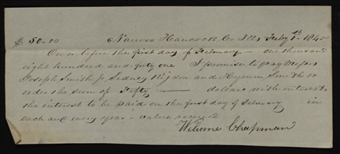 $50.00 Nauvoo Hancock Co. Ills. Feby 1st 1840
On or before the first day of February — one thousand
eight hundred and forty one I promise to pay Messrs
Joseph Smith Jr Sidney Rigdon and Hyrum Smith or
order the sum of Fifty — dollars with interest
the interest to be paid on the first day of February in
each and every year — value
Chapman